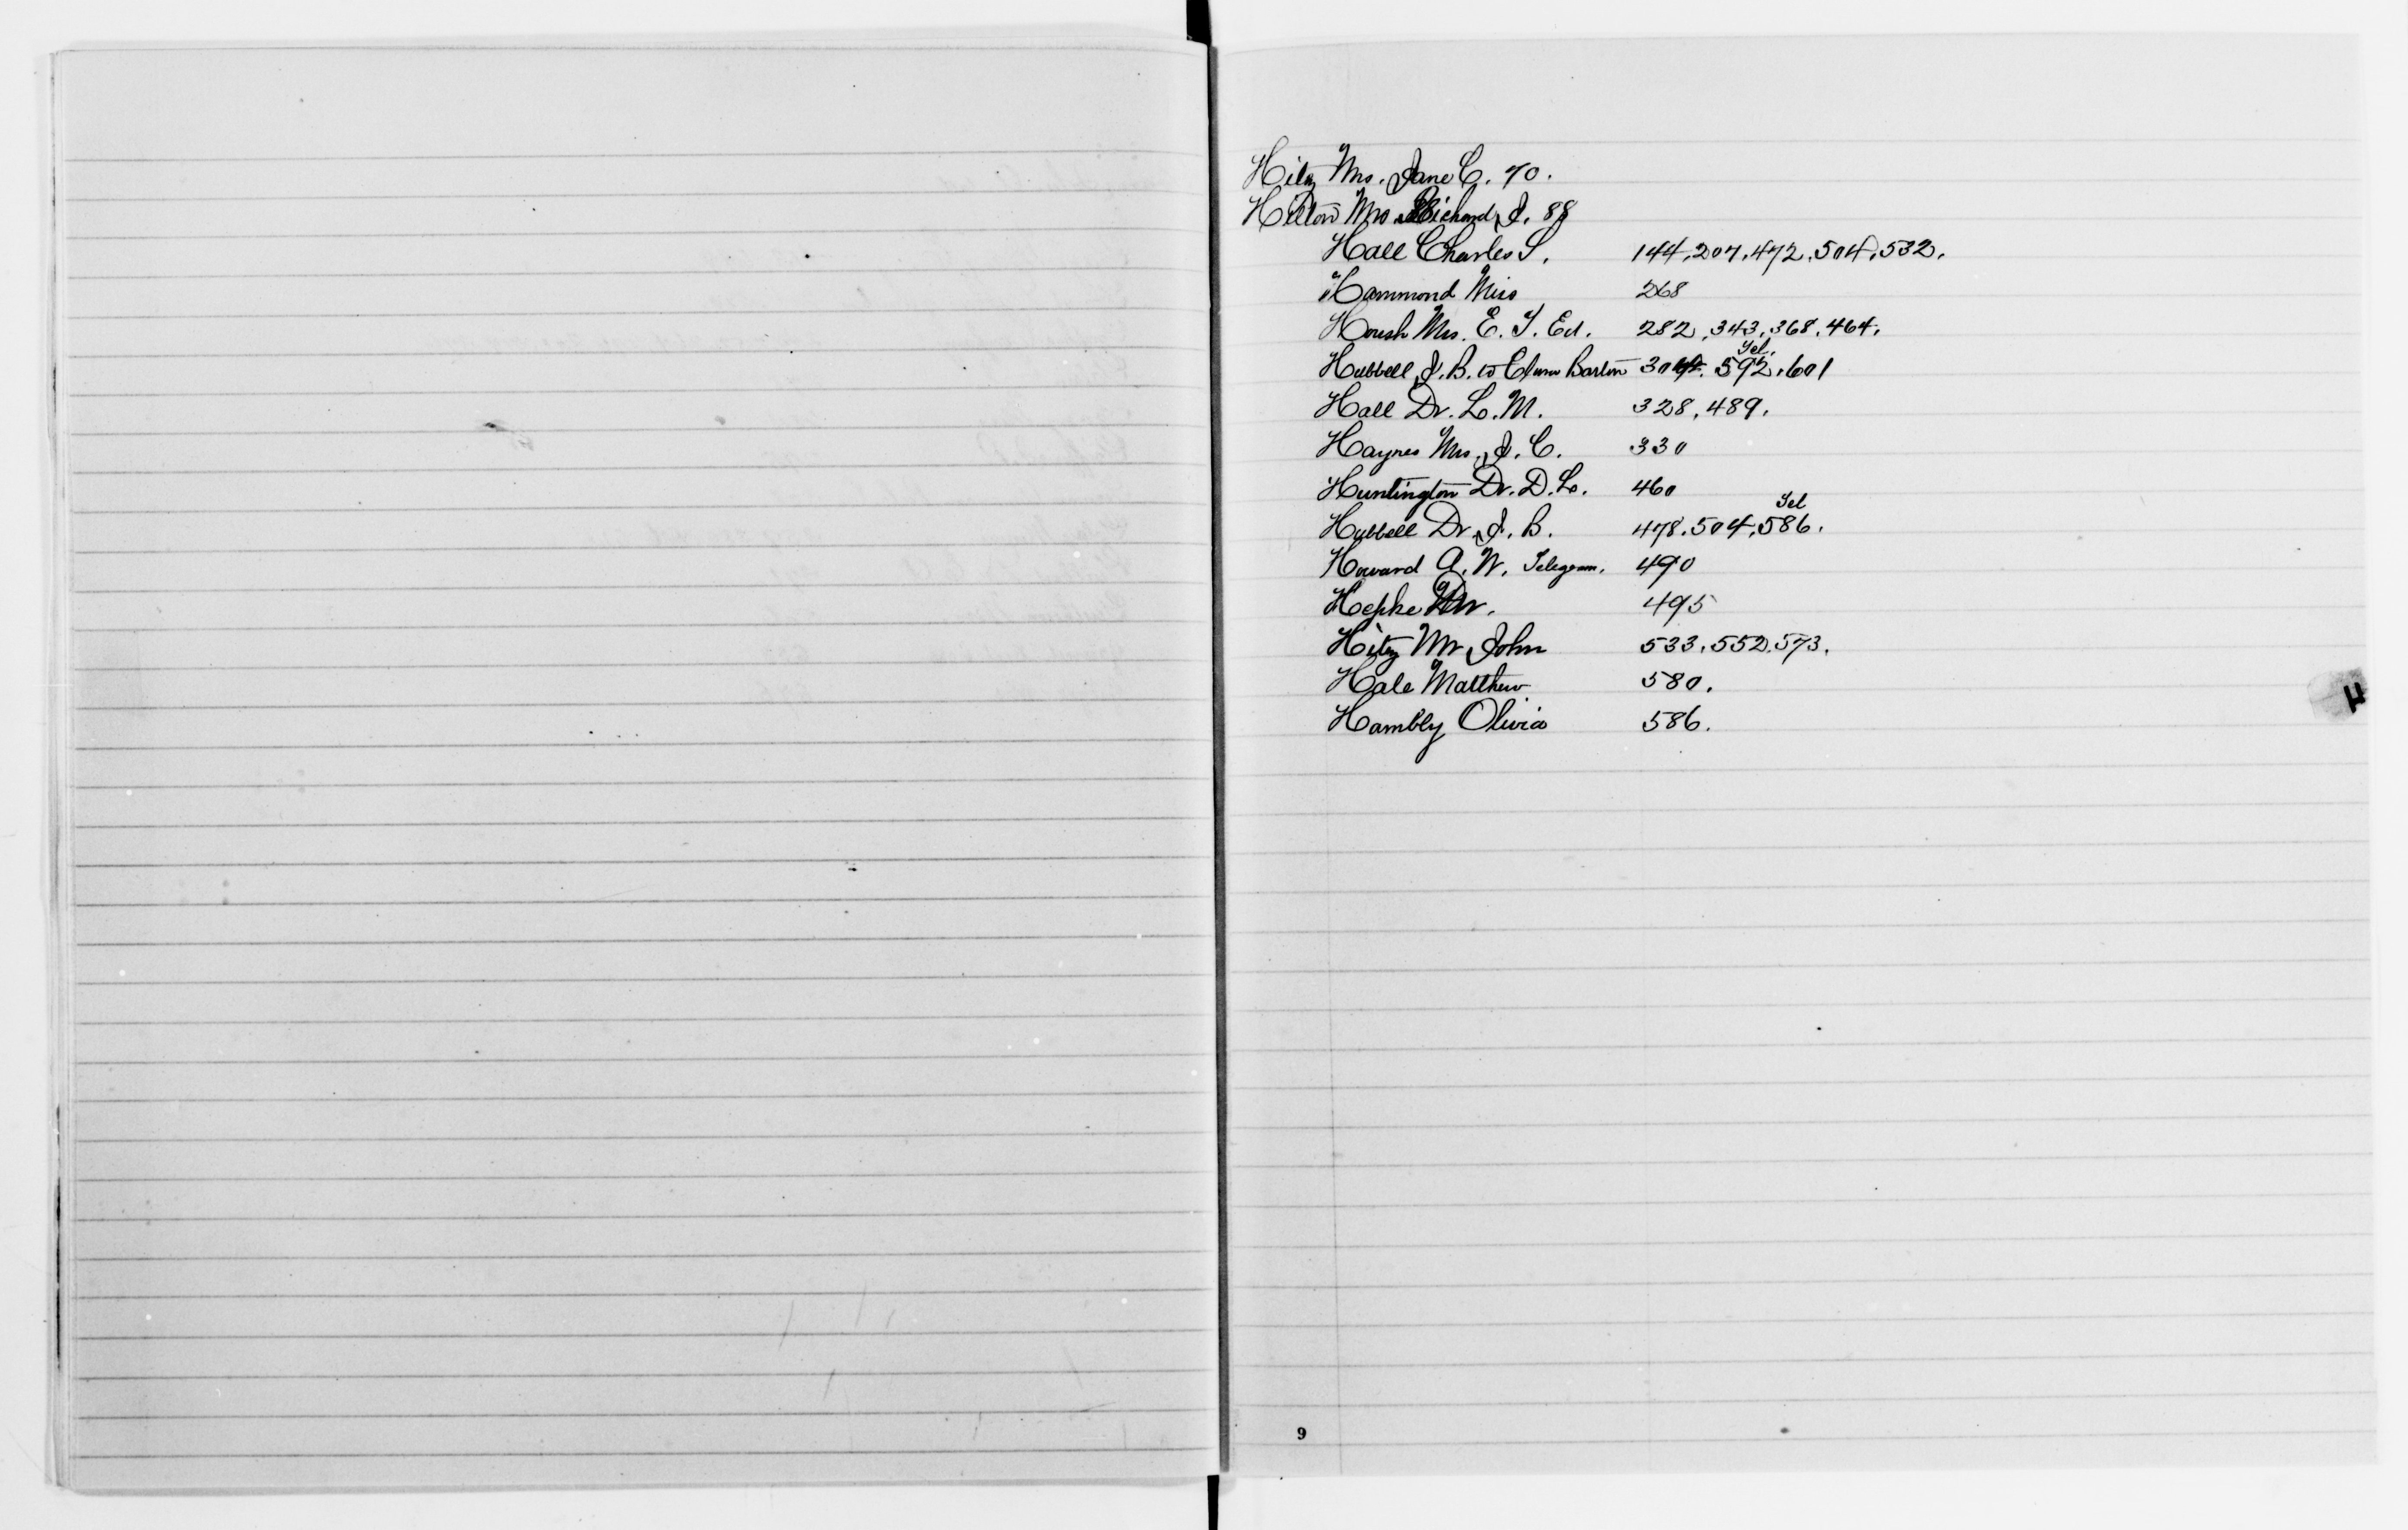 Hitz Mrs. Jane C. 70.
Hilton Mrs Richard J. 88
Hall Charles S. 144, 207, 472, 504, 532.
Hammond Miss 268
Housh Mrs. E. T. Ed. 282, 343, 368, 464.
Tel.
Hubbell J. B. to Clara Barton 304. 592, 601
Hall Dr. L. M. 328, 489.
Haynes Mrs. J. C. 330
Huntington Dr. D. L. 460
Tel
Hubbell Dr. J. B. 478. 504, 586.
Howard A. W. Telegram. 490
Hepke 495
Hitz Mr John 533, 552. 573.
Hale Matthew 580.
Hambly Olivia 586.
H
9